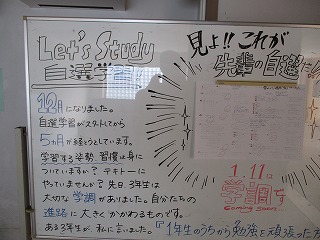 Let's Study
自選学習
12月になりました。
自選学習がスタートしてから
5ヵ月が経とうとしています。
学習する姿勢、習慣は身に
ついていますか？テキトーに
やっていませんか？先日、3年生は
大切な学調がありました。自分たちの
進路に大きくかかわるものです。
ある3年生が、私に言いました。『1年生のうちから勉強を頑張った方
見よ!!これが
先輩の自選だ!
1.11は
学調です
Coming soon